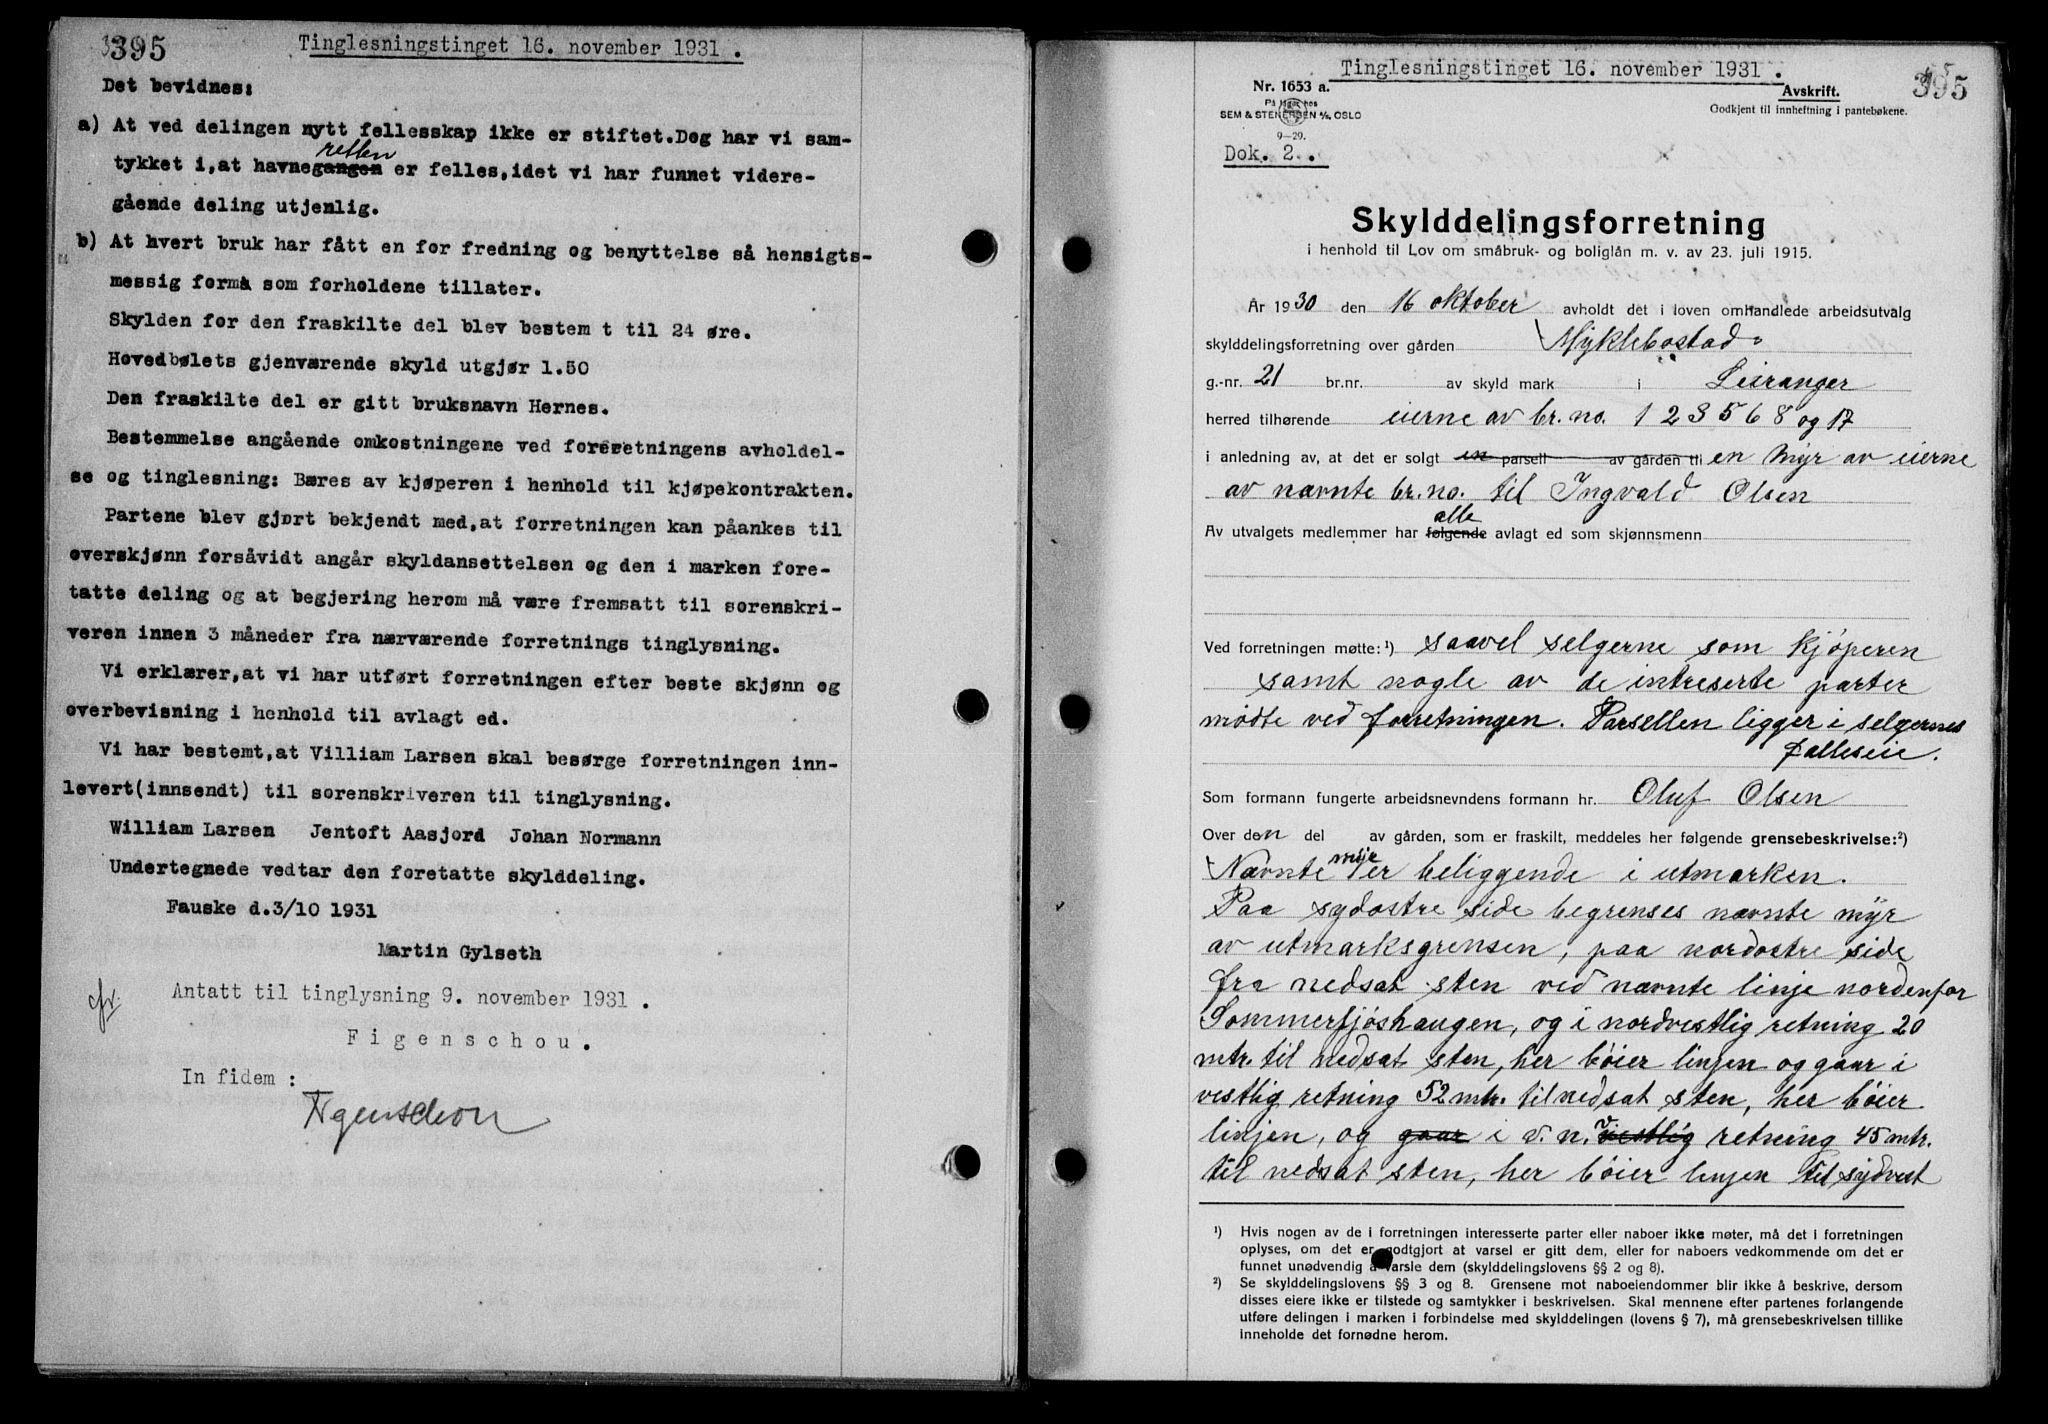 395
Tinglesningstinget 16. november 1931 .
Det bevidnes:
a) At ved delingen nytt fellesskap ikke er stiftet. Dog har vi sam-
retten
tykket i, at havnegangen er felles, idet vi har funnet videre-
gående deling utjenlig.
b) At hvert bruk har fått en for fredning og benyttelse så hensigts-
messig forma som forholdene tillater.
Skylden for den fraskilte del blev bestem t til 24 øre.
Hovedbølets gjenværende skyld utgjør 1.50
Den fraskilte del er gitt bruksnavn Hernes.
Bestemmelse angående omkostningene ved forrretningens avholdel-
se og tinglesning: Bæres av kjøperen i henhold til kjøpekontrakten.
Partene blev gjort bekjendt med, at forretningen kan påankes til
overskjønn forsåvidt angår skyldansettelsen og den i marken fore-
tatte deling og at begjering herom må være fremsatt til sorenskri-
veren innen 3 måneder fra nærværende forretnings tinglysning.
Vi erklærer, at vi har utført forretningen efter beste skjønn og
overbevisning i henhold til avlagt ed.
Vi har bestemt, at Villiam Larsen skal besørge forretningen inn-
levert (innsendt) til sorenskriveren til tinglysning.
William Larsen Jentoft Aasjord Johan Normann
Undertegnede vedtar den foretatte skylddeling.
Fauske d.3/10 1931
Martin Gylseth
cfr. Antatt til tinglysning 9. november 1931 .
Figenschou.
In fidem :
Figenschou
Tinglesningstinget 16. november 1931 .
395
Nr. 1653 a.
Avskrift.
På lager hos
Godkjent til innheftning i pantebøkene.
SEM & STENERSEN A/S, OSLO
9—29.
Dok. 2. .
Skylddelingsforretning
i henhold til Lov om småbruk- og boliglån m. v. av 23. juli 1915.
År 1930 den 16 oktober avholdt det i loven omhandlede arbeidsutvalg
skylddelingsforretning over gården Myklebostad
g.-nr. 21 br.nr. av skyld mark i Leiranger
herred tilhørende eierne av br. no. 1 2 3 5 6 8 og 17
i anledning av, at det er solgt en parsell av gården til en myr av eierne
av nævnte br. no. til Ingvald Olsen
alle
Av utvalgets medlemmer har følgende avlagt ed som skjønnsmenn
Ved forretningen møtte:¹) saavel selgerne som kjøperen
samt nogle av de intreserte parter
mødte ved forretningen. Parsellen ligger i selgernes
fælleseie.
Som formann fungerte arbeidsnevndens formann hr. Oluf Olsen
Over den del av gården, som er fraskilt, meddeles her følgende grensebeskrivelse:²)
myr
Nævnte er beliggende i utmarken.
Paa sydostre side begrenses nævnte myr
av utmarksgrensen, paa nordostre side
fra nedsat sten ved nævnte linje nordenfor
Sommerfjøshaugen, og i nordvestlig retning 20
mtr. til nedsat sten, her bøier linjen og gaar i
vestlig retning 52 mtr. til nedsat sten, her bøier
linjen, og gaar i v. n. vestlig retning 45 mtr.
til nedsat sten, her bøier linjen til sydvest
¹) Hvis nogen av de i forretningen interesserte parter eller naboer ikke møter, må det i forretningen
oplyses, om det er godtgjort at varsel er gitt dem, eller for naboers vedkommende om det er
funnet unødvendig å varsle dem (skylddelingslovens §§ 2 og 8).
²) Se skylddelingslovens §§ 3 og 8. Grensene mot naboeiendommer blir ikke å beskrive, dersom
disses eiere ikke er tilstede og samtykker i beskrivelsen. Skal mennene efter partenes forlangende
utføre delingen i marken i forbindelse med skylddelingen (lovens § 7), må grensebeskrivelsen tillike
inneholde det fornødne herom.